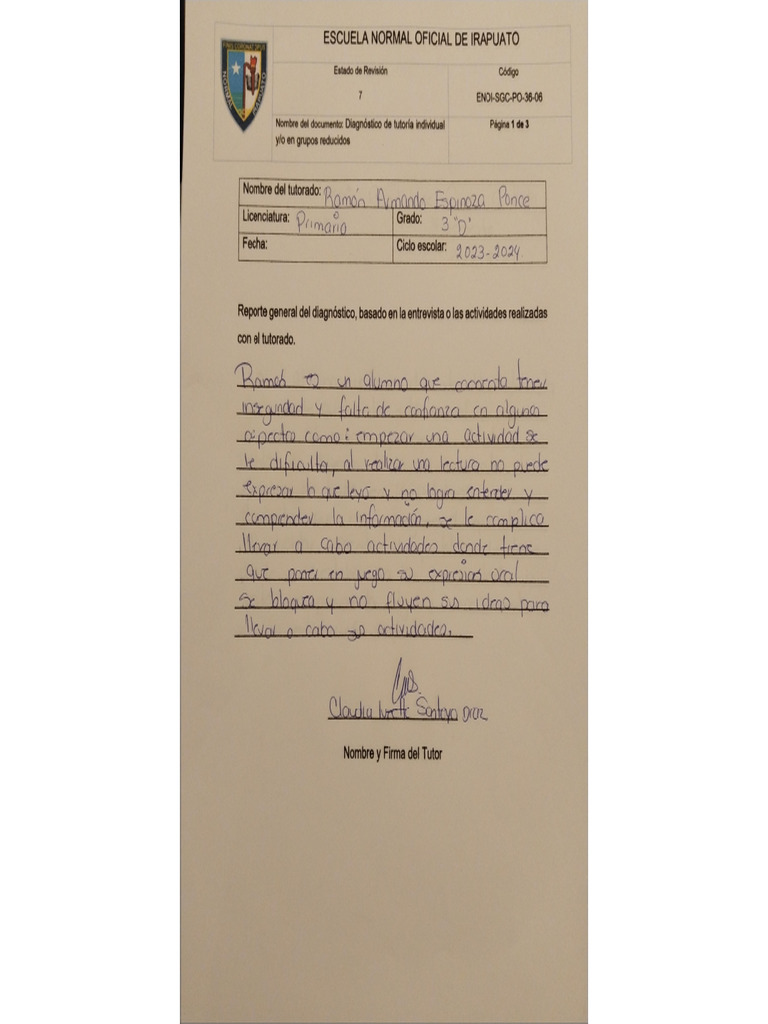 ESCUELA NORMAL OFICIAL DE IRAPUATO
Estado de Revisión
7
Código
ENOI-SGC-PO-36-06
Nombre del documento: Diagnóstico de tutoría individual
y/o en grupos reducidos
Página 1 de 3
Nombre del tutorado: Ramón Armando Espinoza Ponce
Licenciatura: Primaria Grado: 3 "D"
Fecha: Ciclo escolar: 2023-2024
Reporte general del diagnóstico, basado en la entrevista o las actividades realizadas
con el tutorado.
Ramón es un alumno que comenta tener
inseguridad y falta de confianza en algunos
aspectos como: empezar una actividad se
le dificulta, al realizar una lectura no puede
expresar lo que leyó y no logra entender y
comprender la información, se le complica
llevar a cabo actividades donde tiene
que poner en juego su expresión oral
se bloquea y no fluyen sus ideas para
llevar a cabo sus actividades.
Claudia Ivette Santoyo
Nombre y Firma del Tutor